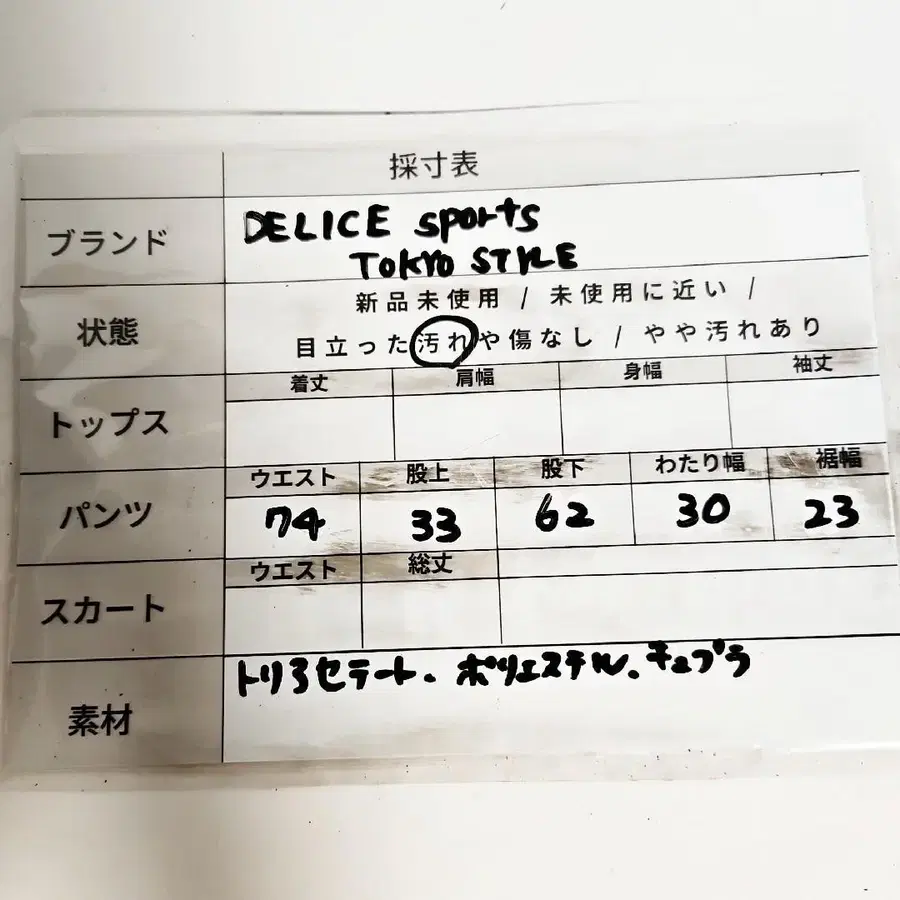 採寸表
ブランド
DELICE sports
TOKYO STYLE
状態
新品未使用 / 未使用に近い /
目立った汚れや傷なし / やや汚れあり
トップス
着丈 肩幅 身幅 袖丈
パンツ
ウエスト 股上 股下 わたり幅 裾幅
74 33 62 30 23
スカート
ウエスト 総丈
素材
トリアセテート. ポリエステル. キュプラ